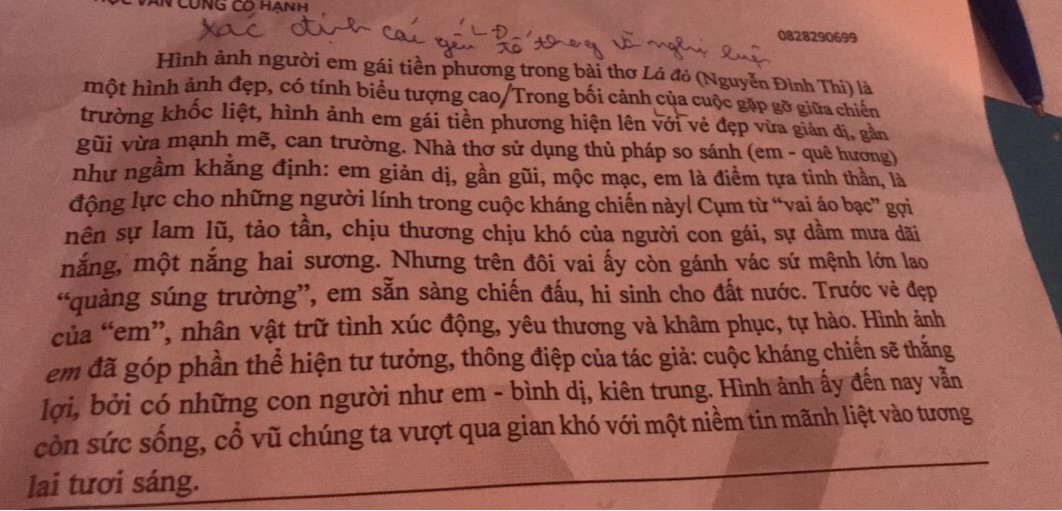 VĂN CÔNG CỔ HẠNH
xác định các yếu tố trong vb nghị luận
LĐ
0828290699
Hình ảnh người em gái tiền phương trong bài thơ Lá đỏ (Nguyễn Đình Thi) là
một hình ảnh đẹp, có tính biểu tượng cao/Trong bối cảnh của cuộc gặp gỡ giữa chiến
trường khốc liệt, hình ảnh em gái tiền phương hiện lên với vẻ đẹp vừa giản dị, gần
gũi vừa mạnh mẽ, can trường. Nhà thơ sử dụng thủ pháp so sánh (em - quê hương)
như ngầm khẳng định: em giản dị, gần gũi, mộc mạc, em là điểm tựa tinh thần, là
động lực cho những người lính trong cuộc kháng chiến này. Cụm từ “vai áo bạc” gợi
nên sự lam lũ, tảo tần, chịu thương chịu khó của người con gái, sự dầm mưa dãi
nắng, một nắng hai sương. Nhưng trên đôi vai ấy còn gánh vác sứ mệnh lớn lao
“quàng súng trường”, em sẵn sàng chiến đấu, hi sinh cho đất nước. Trước vẻ đẹp
của “em”, nhân vật trữ tình xúc động, yêu thương và khâm phục, tự hào. Hình ảnh
em đã góp phần thể hiện tư tưởng, thông điệp của tác giả: cuộc kháng chiến sẽ thắng
lợi, bởi có những con người như em - bình dị, kiên trung. Hình ảnh ấy đến nay vẫn
còn sức sống, cổ vũ chúng ta vượt qua gian khó với một niềm tin mãnh liệt vào tương
lai tươi sáng.